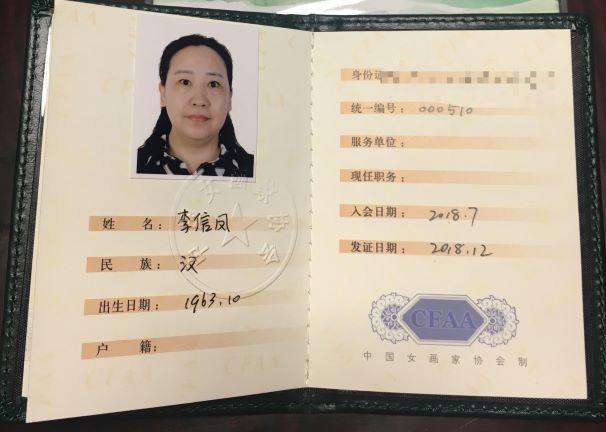 姓 名： 李信凤
民 族： 汉
出生日期： 1963.10
户 籍：
身份证
统一编号： 000510
服务单位：
现任职务：
入会日期： 2018.7
发证日期： 2018.12
CFAA
中国女画家协会制